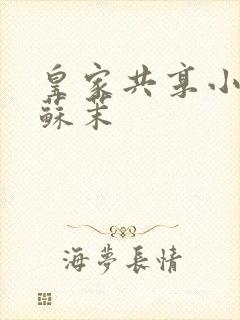 皇家共享小
蘇茉
海夢長情